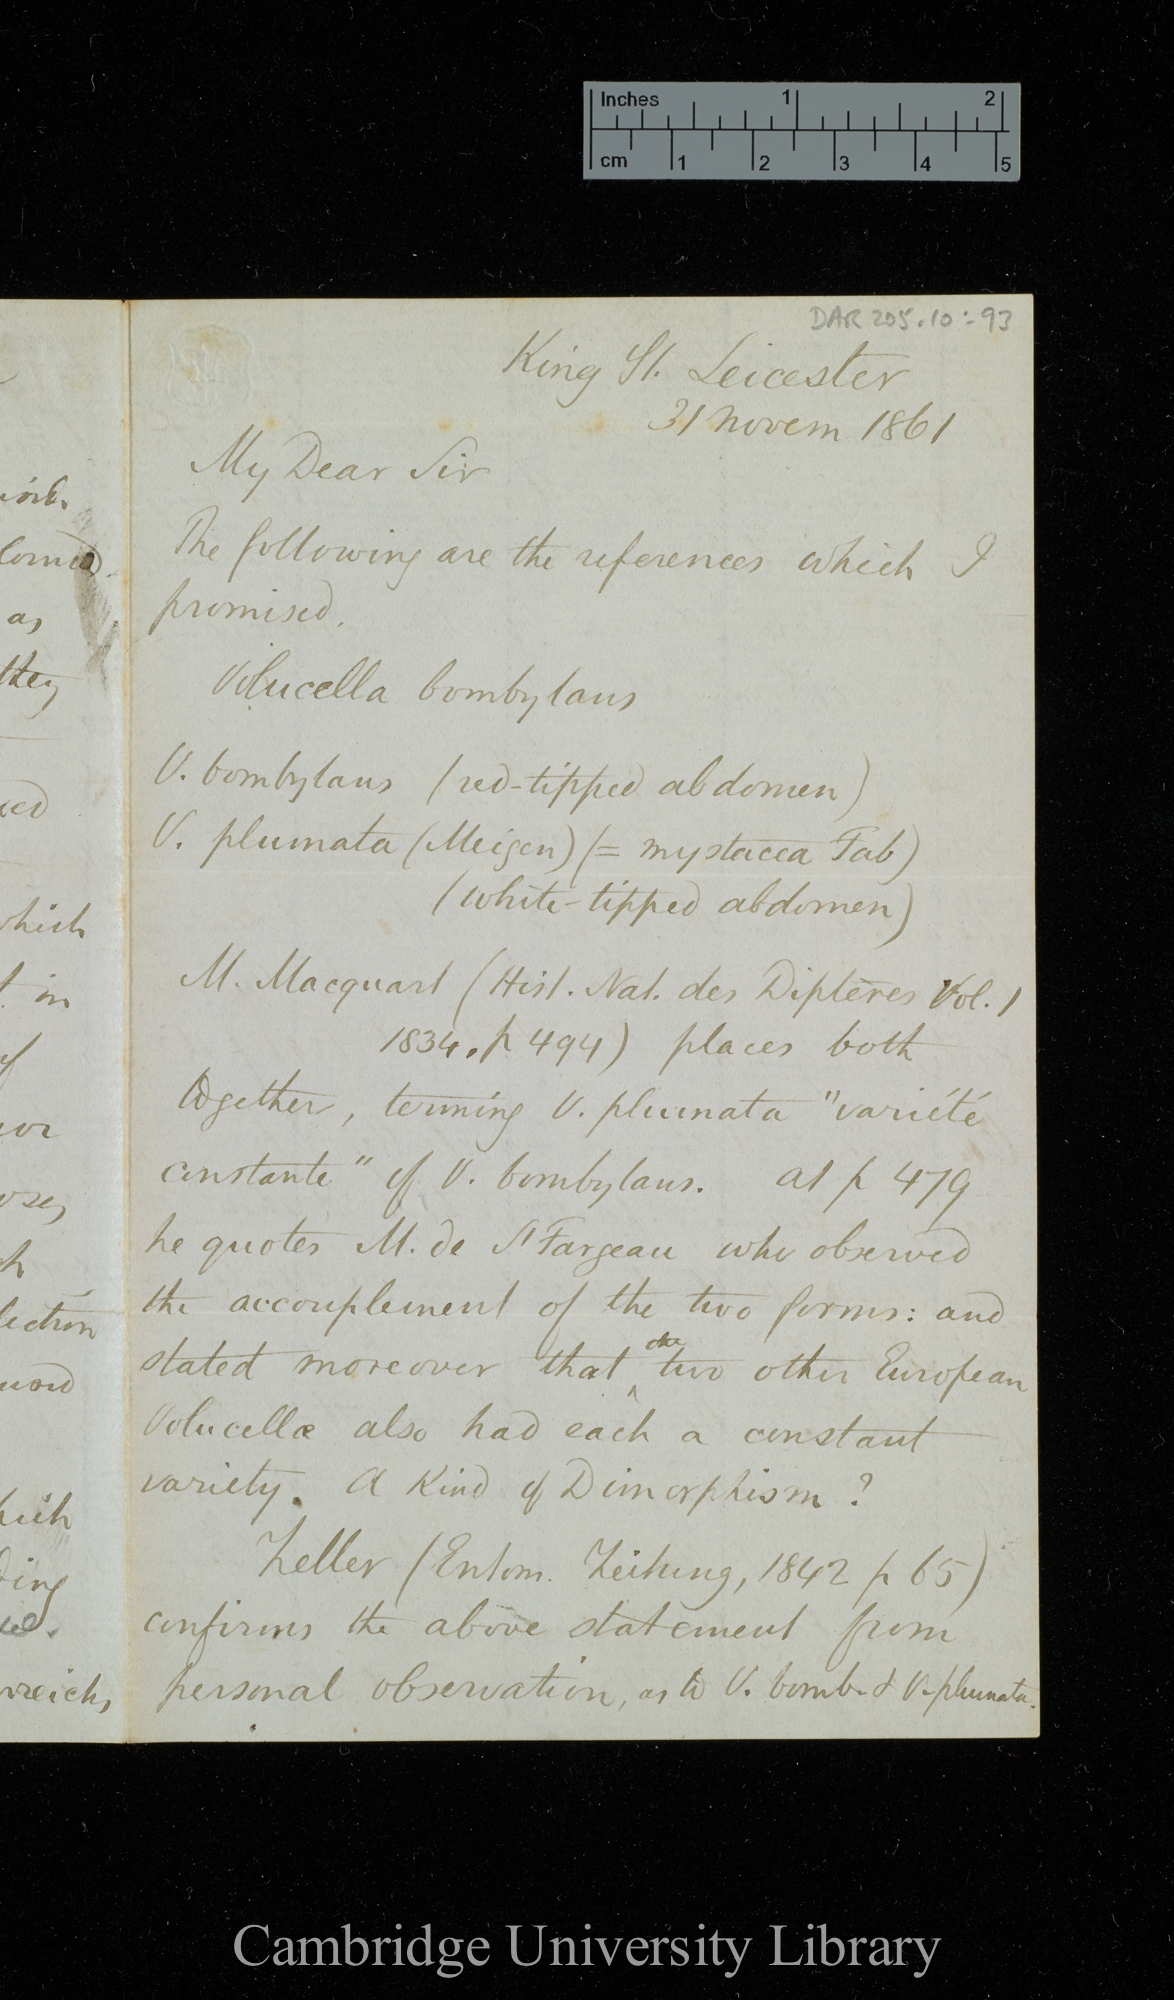 Inches 1 2
cm 1 2 3 4 5
DAR 205.10:-93
King St. Leicester
31 Novem 1861
My Dear Sir
The following are the references which I
promised.
Volucella bombylans
V. bombylans (red-tipped abdomen)
V. plumata (Meigen) (= mystacea Fab)
(white-tipped abdomen)
M. Macquart (Hist. Nat. des Diptères Vol. 1
1834. p 494) places both
together, terming V. plumata "variété
constante" of V. bombylans. At p 479
he quotes M. de St Fargeau who observed
the accouplement of the two forms: and
stated moreover that
the
two other European
Volucellæ also had each a constant
variety. A Kind of Dimorphism?
Zeller (Entom. Zeitung, 1842 p 65)
confirms the above statement from
personal observation, as to V. bomb. & V. plumata.
as
they
which
in
Cambridge University Library